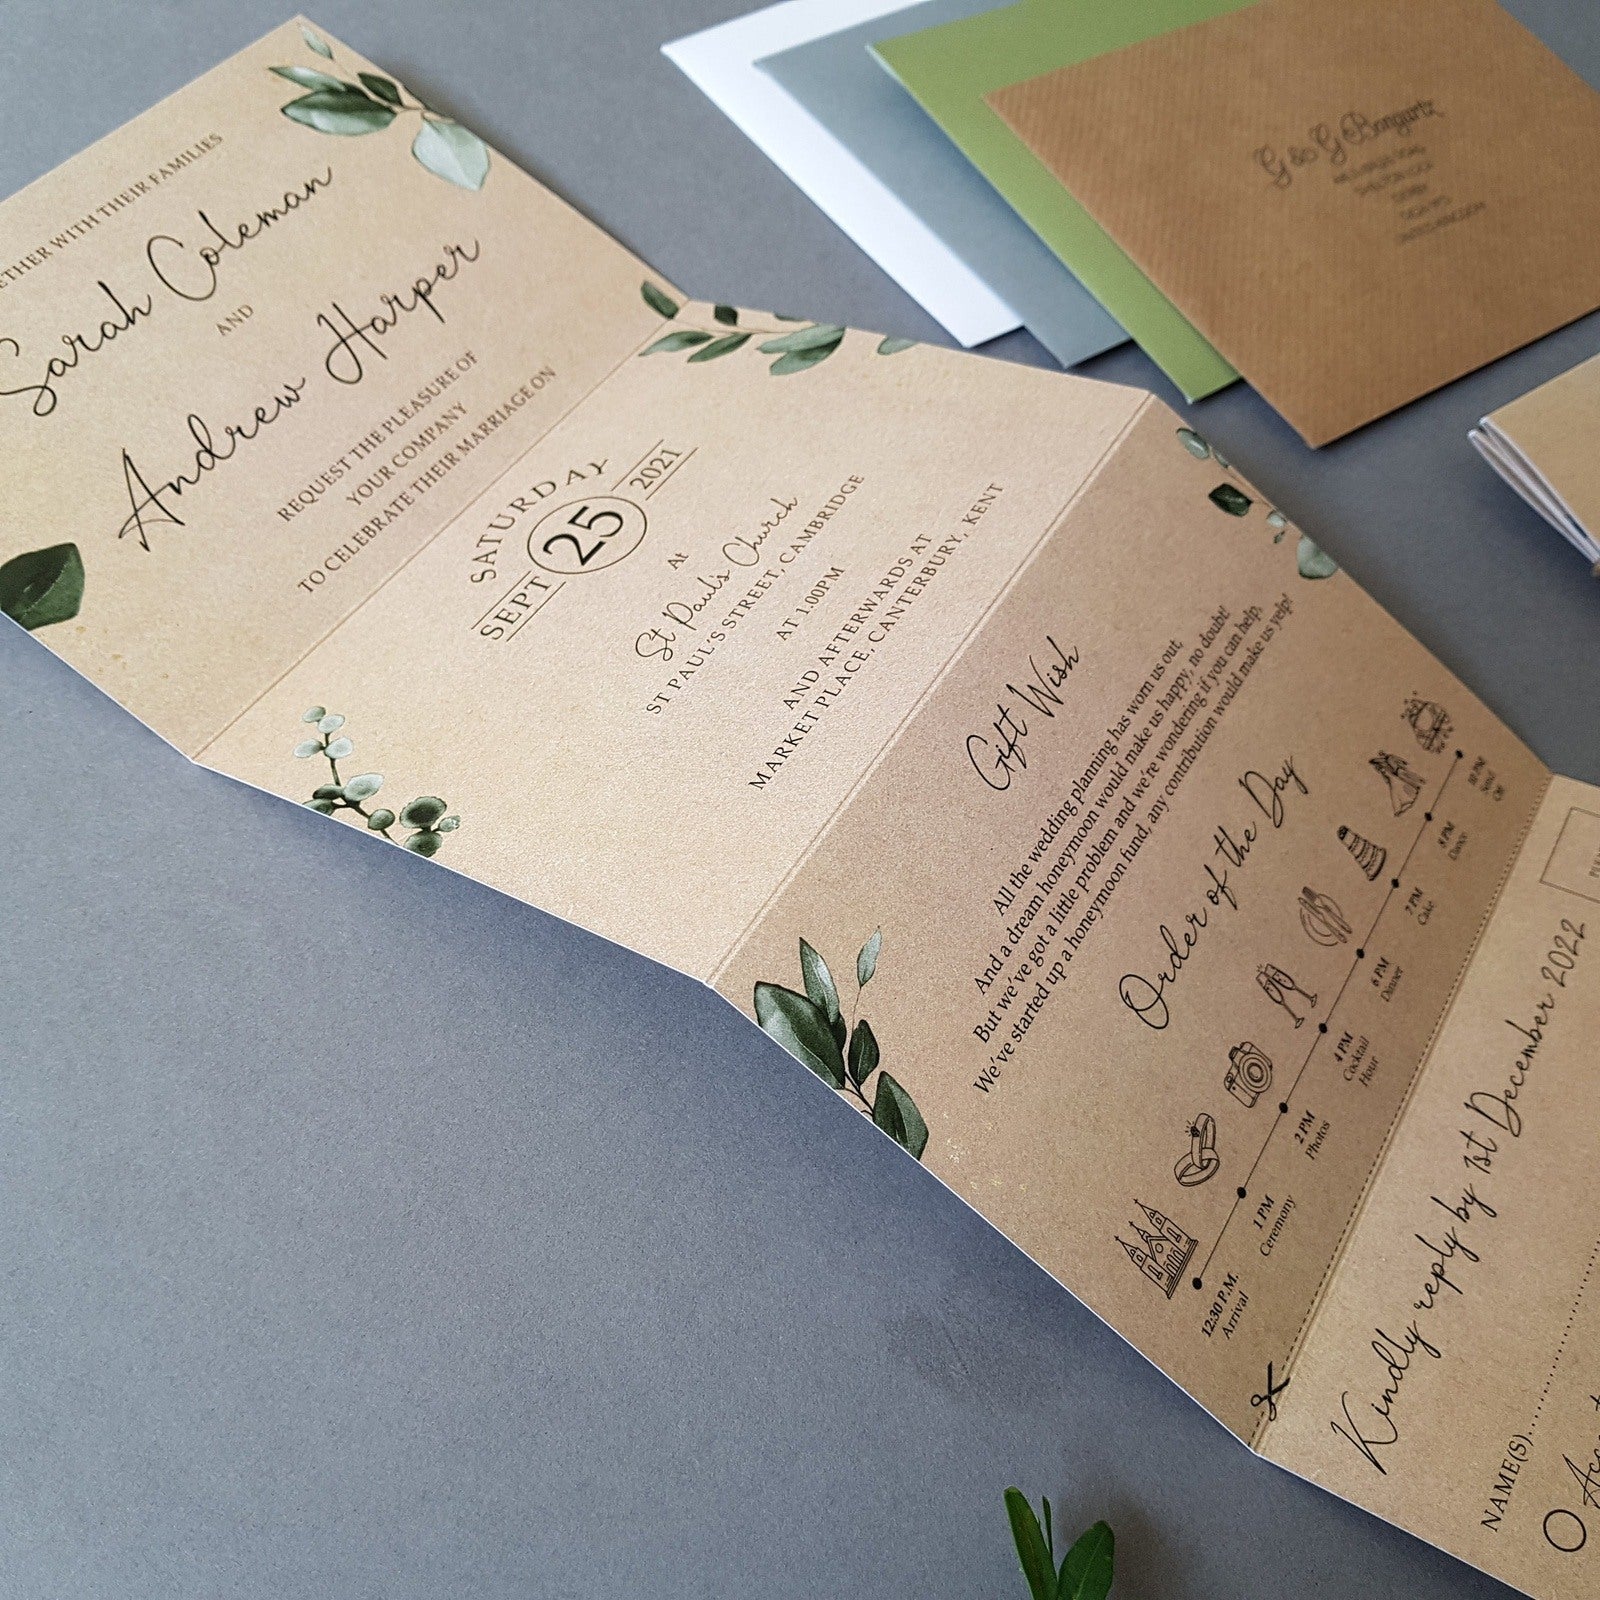 ETHER WITH THEIR FAMILIES
Sarah Coleman
AND
Andrew Harper
REQUEST THE PLEASURE OF
YOUR COMPANY
TO CELEBRATE THEIR MARRIAGE ON
SATURDAY
SEPT 25 2021
At
St Paul's Church
ST PAUL'S STREET, CAMBRIDGE
AT 1.00PM
AND AFTERWARDS AT
MARKET PLACE, CANTERBURY, KENT
Gift Wish
All the wedding planning has worn us out,
And a dream honeymoon would make us happy, no doubt!
But we've got a little problem and we're wondering if you can help,
We've started up a honeymoon fund, any contribution would make us yelp!
Order of the Day
12:30 P.M.
Arrival
1 PM
Ceremony
2 PM
Photos
4 PM
Cocktail
Hour
6 PM
Dinner
7 PM
Cake
8 PM
Dance
10 PM
Send
Off
Kindly reply by 1st December 2022
NAME(S)
G & G Bangartz